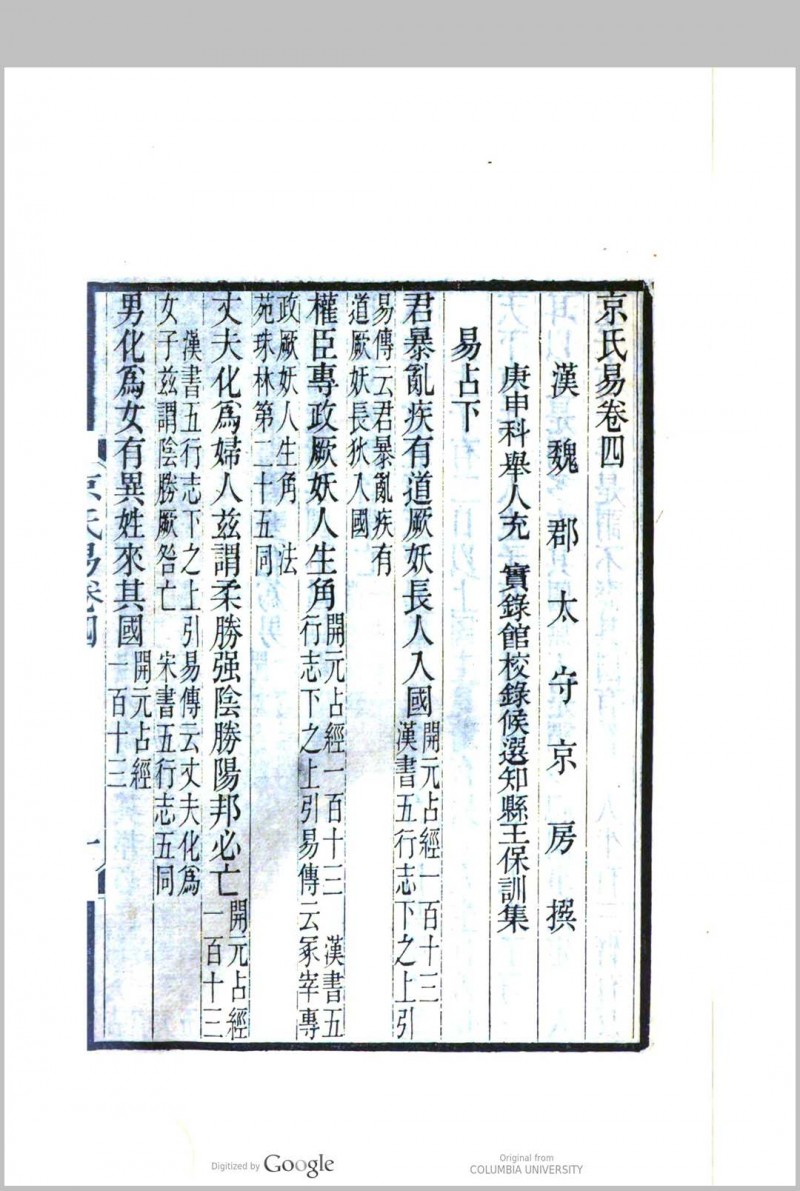 京氏易卷四
漢魏郡太守京房撰
庚申科舉人充 實錄館校錄候選知縣王保訓集
易占下
君暴亂疾有道厥妖長人入國開元占經一百十三
漢書五行志下之上引
易傳云君暴亂疾有
道厥妖長狄入國
權臣專政厥妖人生角開元占經一百十三 漢書五
行志下之上引易傳云冢宰專
政厥妖人生角 法
苑珠林第二十五同
丈夫化爲婦人茲謂柔勝强陰勝陽邦必亡開元占經
一百十三
漢書五行志下之上引易傳云丈夫化爲
女子茲謂陰勝厥咎亡 宋書五行志五同
男化爲女有異姓來其國開元占經
一百十三
京氏易卷四
一
Digitized by Google
Original from
COLUMBIA UNIVERSITY